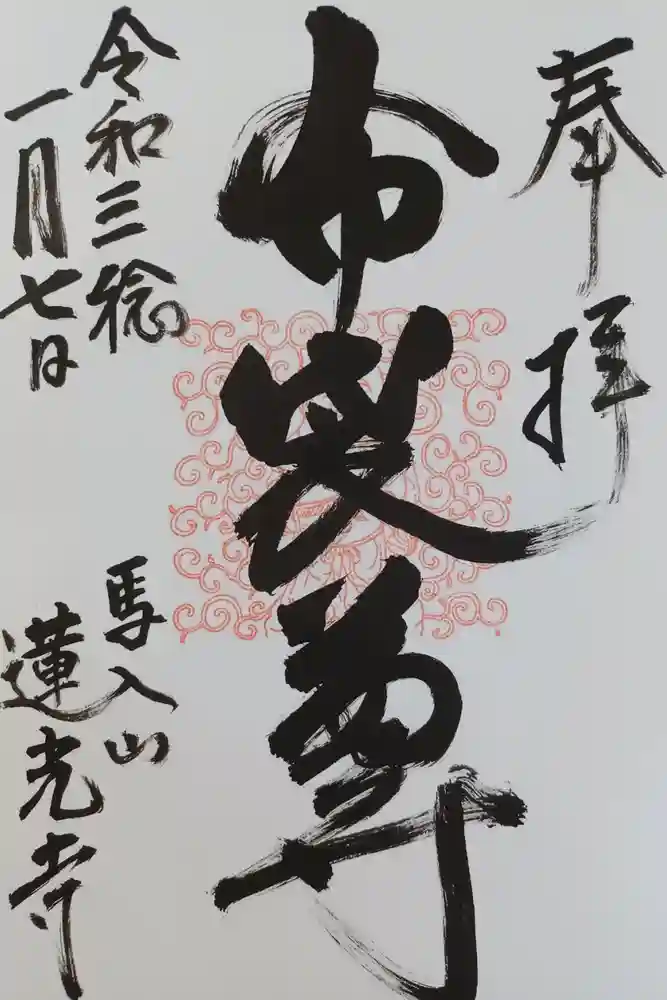 奉拝
布袋尊
令和三稔
一月七日
馬入山
蓮光寺